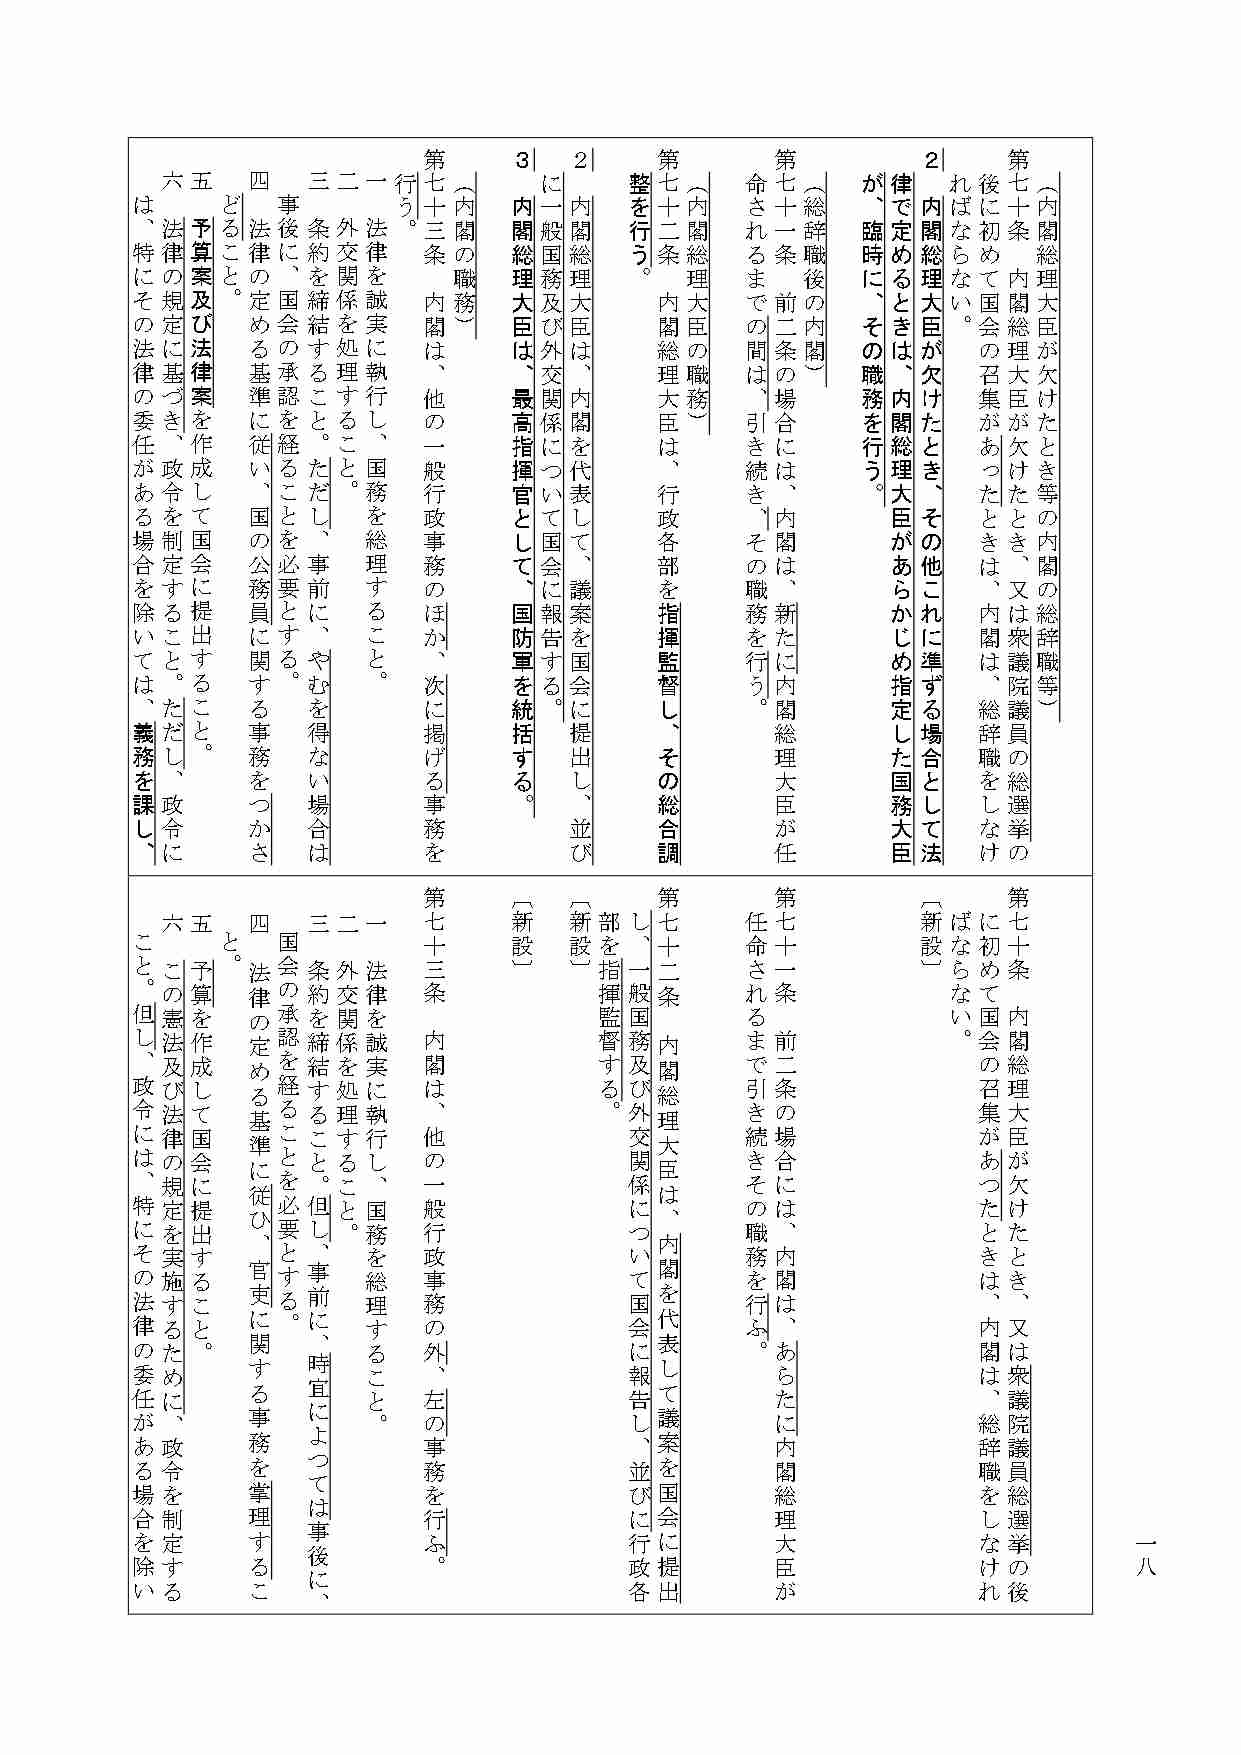 （内閣総理大臣が欠けたとき等の内閣の総辞職等）
第七十条　内閣総理大臣が欠けたとき、又は衆議院議員の総選挙の
後に初めて国会の召集があったときは、内閣は、総辞職をしなけ
ればならない。
２　内閣総理大臣が欠けたとき、その他これに準ずる場合として法
律で定めるときは、内閣総理大臣があらかじめ指定した国務大臣
が、臨時に、その職務を行う。
（総辞職後の内閣）
第七十一条　前二条の場合には、内閣は、新たに内閣総理大臣が任
命されるまでの間は、引き続き、その職務を行う。
（内閣総理大臣の職務）
第七十二条　内閣総理大臣は、行政各部を指揮監督し、その総合調
整を行う。
２　内閣総理大臣は、内閣を代表して、議案を国会に提出し、並び
に一般国務及び外交関係について国会に報告する。
３　内閣総理大臣は、最高指揮官として、国防軍を統括する。
（内閣の職務）
第七十三条　内閣は、他の一般行政事務のほか、次に掲げる事務を
行う。
一　法律を誠実に執行し、国務を総理すること。
二　外交関係を処理すること。
三　条約を締結すること。ただし、事前に、やむを得ない場合は
事後に、国会の承認を経ることを必要とする。
四　法律の定める基準に従い、国の公務員に関する事務をつかさ
どること。
五　予算案及び法律案を作成して国会に提出すること。
六　法律の規定に基づき、政令を制定すること。ただし、政令に
は、特にその法律の委任がある場合を除いては、義務を課し、
第七十条　内閣総理大臣が欠けたとき、又は衆議院議員総選挙の後
に初めて国会の召集があつたときは、内閣は、総辞職をしなけれ
ばならない。
〔新設〕
第七十一条　前二条の場合には、内閣は、あらたに内閣総理大臣が
任命されるまで引き続きその職務を行ふ。
第七十二条　内閣総理大臣は、内閣を代表して議案を国会に提出
し、一般国務及び外交関係について国会に報告し、並びに行政各
部を指揮監督する。
〔新設〕
〔新設〕
第七十三条　内閣は、他の一般行政事務の外、左の事務を行ふ。
一　法律を誠実に執行し、国務を総理すること。
二　外交関係を処理すること。
三　条約を締結すること。但し、事前に、時宜によつては事後に、
国会の承認を経ることを必要とする。
四　法律の定める基準に従ひ、官吏に関する事務を掌理するこ
と。
五　予算を作成して国会に提出すること。
六　この憲法及び法律の規定を実施するために、政令を制定する
こと。但し、政令には、特にその法律の委任がある場合を除い
一八